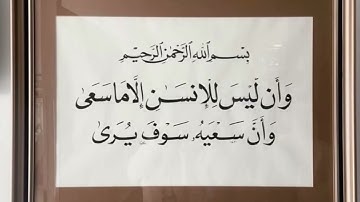 بسم الله الرحمن الرحيم
وَأَن لَّيْسَ لِلْإِنسَٰنِ إِلَّا مَا سَعَىٰ
وَأَنَّ سَعْيَهُۥ سَوْفَ يُرَىٰ